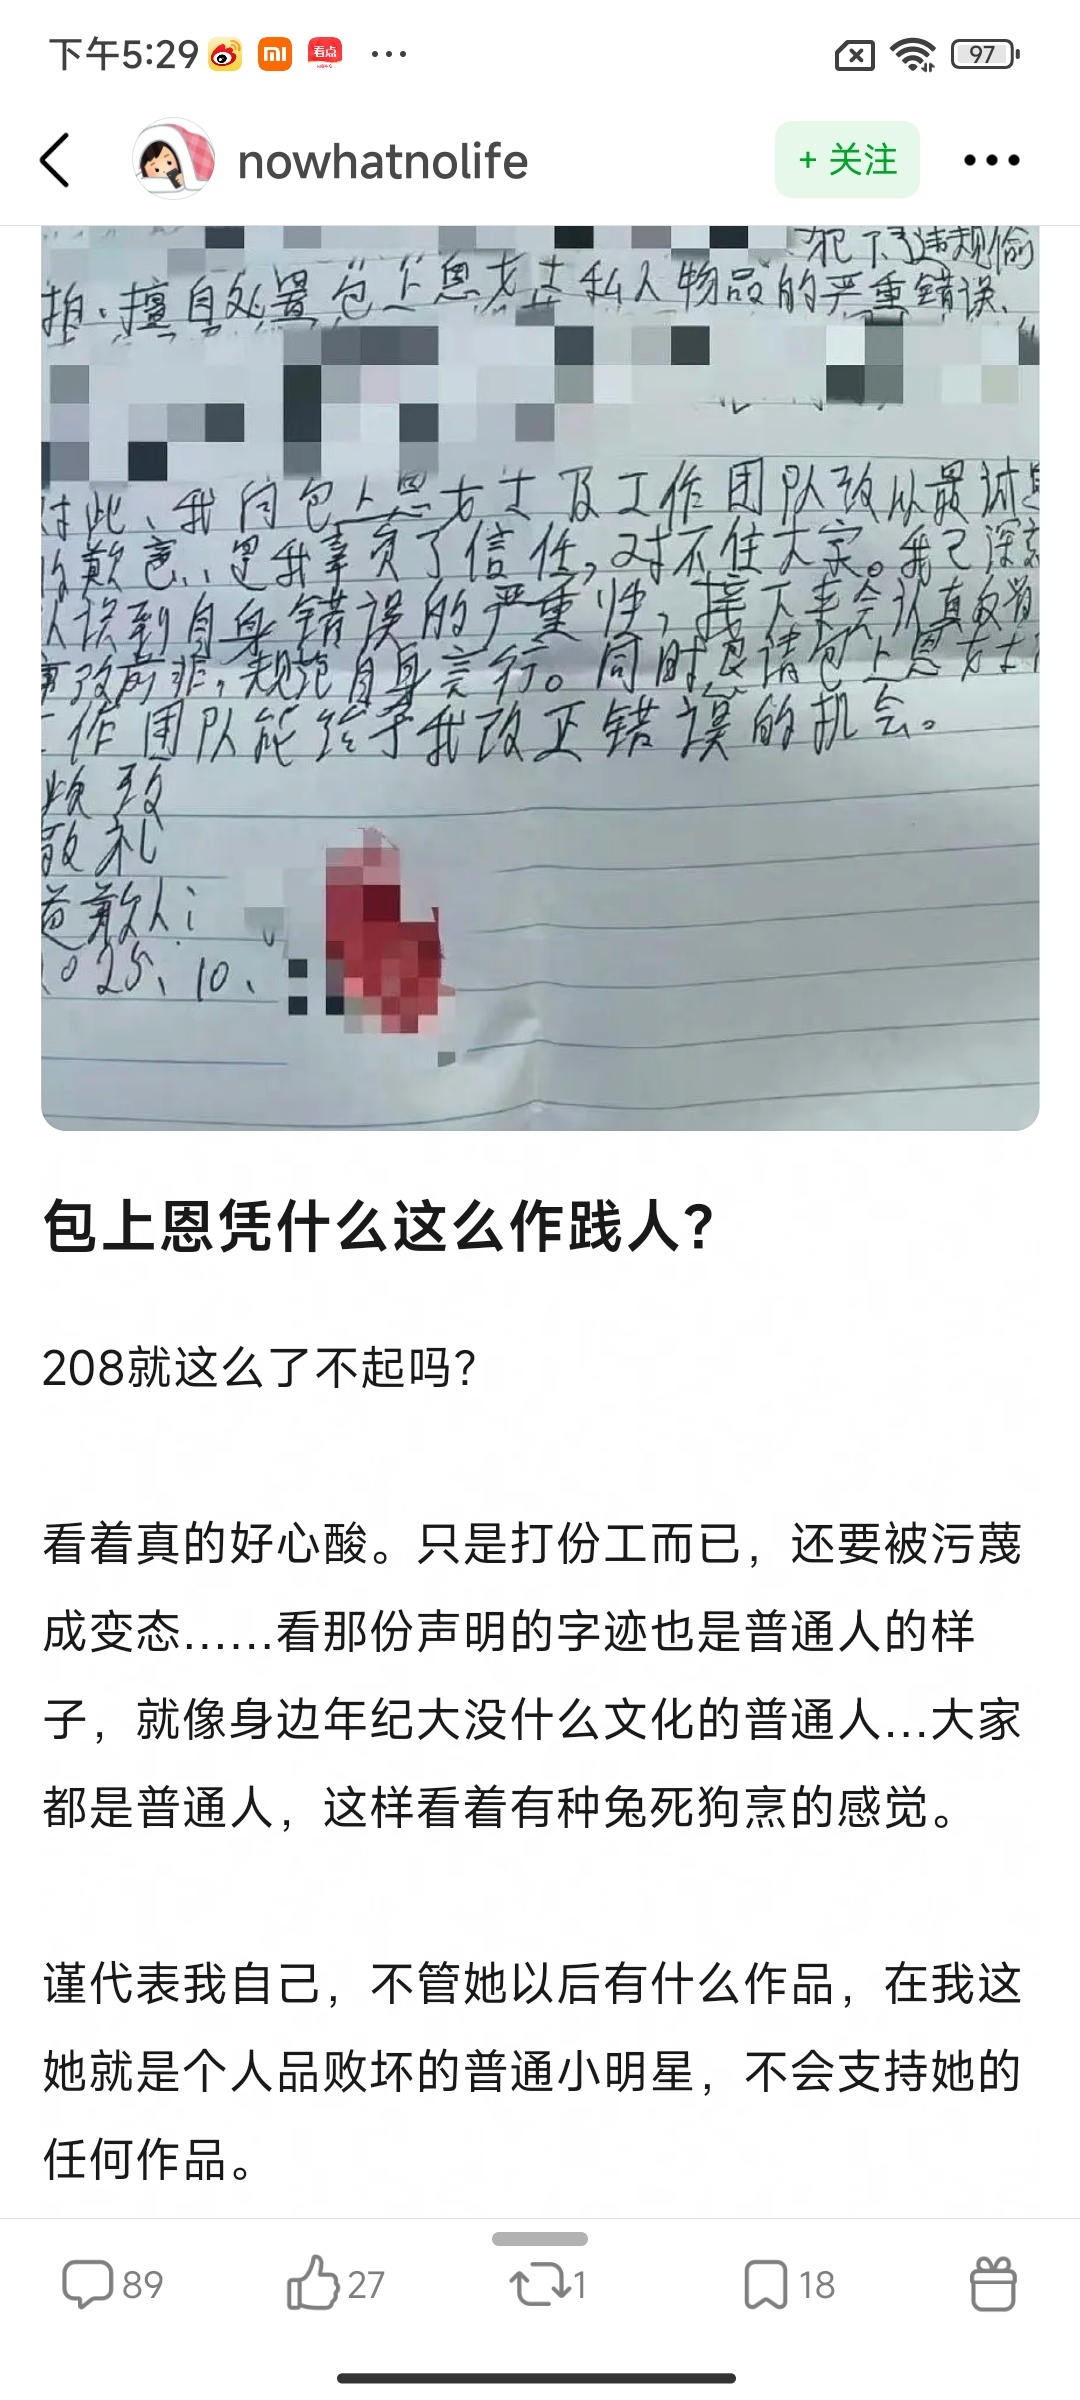 下午5:29
97
nowhatnolife
+ 关注
犯下了违规偷
拍、擅自处置包上恩女士私人物品的严重错误、
对此、我向包上恩女士及工作团队致以最诚
歉意、是我辜负了信任,对不住大家。我已深
认误到自身错误的严重性,接下来会认真
改前非,规范自身言行。同时恳请包上恩女士
工作团队能给予我改正错误的机会。
致
敬礼
道歉人:
2025、10、
包上恩凭什么这么作践人?
208就这么了不起吗?
看着真的好心酸。只是打份工而已,还要被污蔑
成变态……看那份声明的字迹也是普通人的样
子,就像身边年纪大没什么文化的普通人...大家
都是普通人,这样看着有种兔死狗烹的感觉。
谨代表我自己,不管她以后有什么作品,在我这
她就是个人品败坏的普通小明星,不会支持她的
任何作品。
89
27
1
18